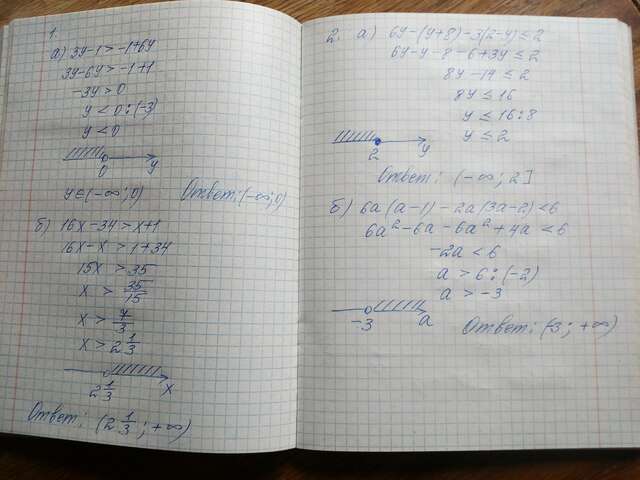 1.
а) 3y-1 > -1+6y
3y-6y > -1+1
-3y > 0
y < 0 : (-3)
y < 0
0 y
y ∈ (-∞; 0) Ответ: (-∞; 0)
б) 16x-34 > x+1
16x-x > 1+34
15x > 35
x > 35/15
x > 7/3
x > 2 1/3
2 1/3 x
Ответ: (2 1/3; +∞)
2. а) 6y-(y+8)-3(2-y) ≤ 2
6y-y-8-6+3y ≤ 2
8y-14 ≤ 2
8y ≤ 16
y ≤ 16:8
y ≤ 2
2 y
Ответ: (-∞; 2]
б) 6a(a-1)-2a(3a-2) < 6
6a²-6a-6a²+4a < 6
-2a < 6
a > 6 : (-2)
a > -3
-3 a
Ответ: (-3; +∞)